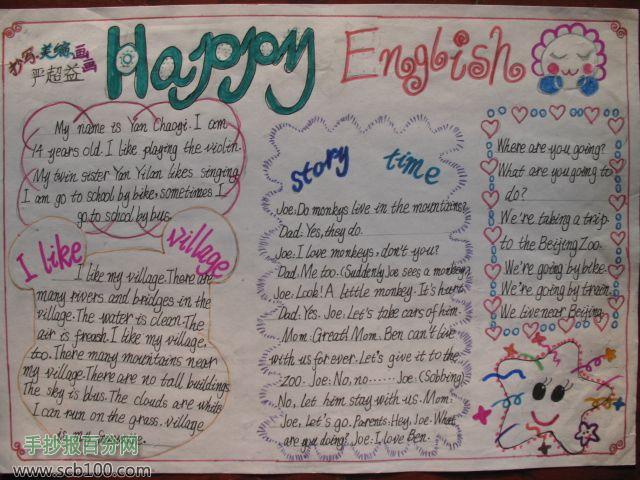 Happy English
抄写.美编.画画
严超益
My name is Yan Chaoyi. I am
14 years old. I like playing the violin.
My twin sister Yan Yilan likes singing.
I am go to school by bike, sometimes I
go to school by bus.
I like village
I like my village. There are
many rivers and bridges in the
village. The water is clean. The
air is freash. I like my village,
too. There many mountains near
my village. There are no tall buildings
The sky is blus. The clouds are white
I can run on the grass. village
is my
story time
Joe: Do monkys live in the mountains?
Dad: Yes, they do.
Joe: I love monkeys, don't you?
Dad: Me too. (Suddenly Joe sees a monkey)
Joe: Look! A little monkey. It's hurt.
Dad: Yes. Joe: Let's take cars of him.
Mom: Great! Mom: Ben can't live
with us forever. Let's give it to the
zoo. Joe: No, no...... Joe: (Sobbing)
No, let him stay with us. Mom:
Joe, Let's go. Parents: Hey, Joe. What
are you doing? Joe: I love Ben.
Where are you going?
What are you going to
do?
We're taking a trip
to the Beijing Zoo.
We're going by bike.
We're going by train.
We live near Beijing.
手抄报百分网
www.scb100.com